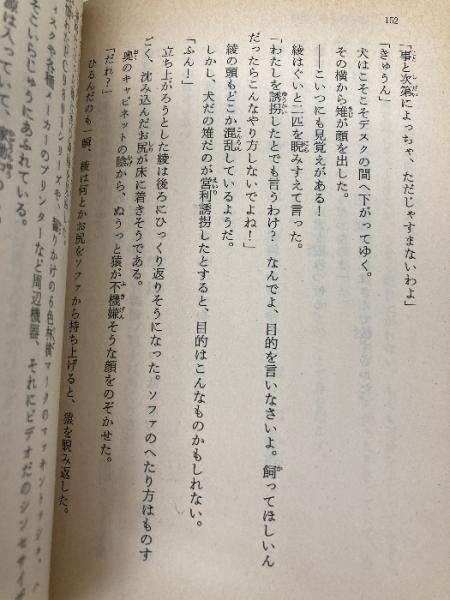 152
「事と次第によっちゃ、ただじゃすまないわよ」
「きゅうん」
犬はこそこそデスクの間へ下がってゆく。
その横から雉が顔を出した。
――こいつにも見覚えがある！
綾はぐいと二匹を睨みすえて言った。
「わたしを誘拐したとでも言うわけ？　なんでよ、目的を言いなさいよ。飼ってほしいん
だったらこんなやり方しないでよね！」
綾の頭もどこか混乱しているようだ。
しかし、犬だの雉だのが営利誘拐したとすると、目的はこんなものかもしれない。
「ふん！」
立ち上がろうとした綾は後ろにひっくり返りそうになった。ソファのへたり方はものす
ごく、沈み込んだお尻が床に着きそうである。
奥のキャビネットの陰から、ぬうっと猿が不機嫌そうな顔をのぞかせた。
「だれ？」
ひるんだのも一瞬、綾は何とかお尻をソファから持ち上げると、猿を睨み返した。
かけの6色林檎マークのマッキントッシュ、
ィスクや各種
ーのプリンターなど周辺機器、それにビデオだのシンセサイザ
そこいらじゅうあふれている。